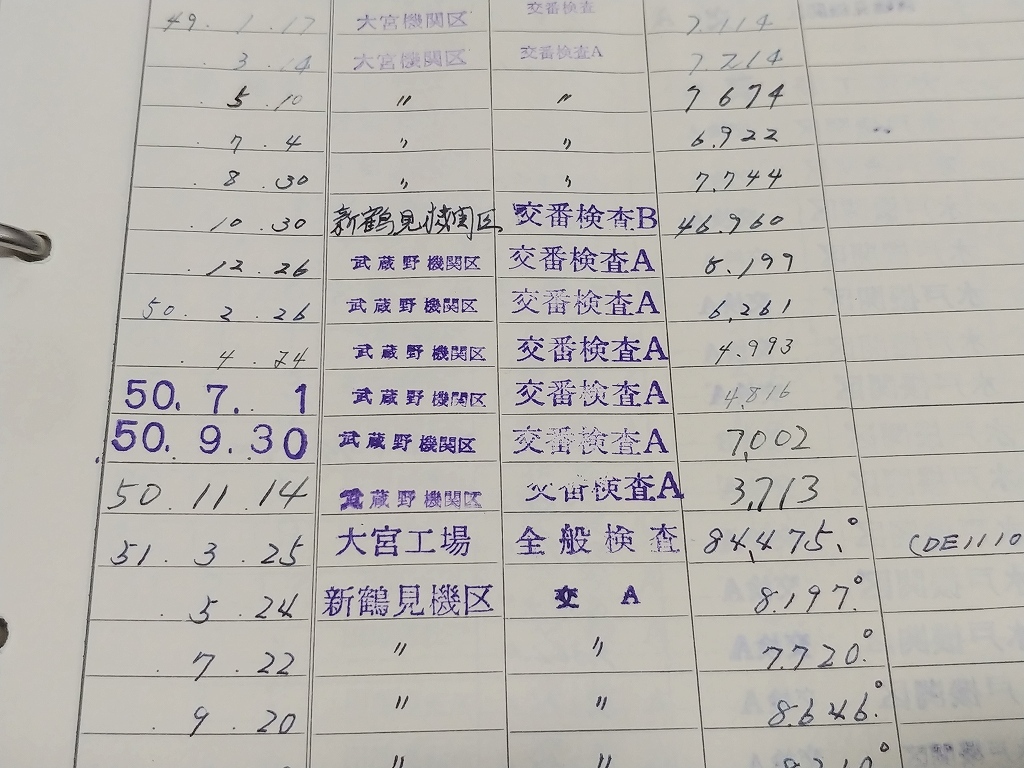 49. 1. 17 大宮機関区 交番検査 7.114
. 3. 14 大宮機関区 交番検査A 7.214
. 5. 10 〃 〃 7 674
. 7. 4 〃 〃 6.922
. 8. 30 〃 〃 7.744
. 10. 30 新鶴見機関区 交番検査B 46.960
. 12. 26 武蔵野機関区 交番検査A 8.199
50. 2. 26 武蔵野機関区 交番検査A 6,261
. 4. 24 武蔵野機関区 交番検査A 4.993
50. 7. 1 武蔵野機関区 交番検査A 4.816
50. 9. 30 武蔵野機関区 交番検査A 7,002
50 11 14 武蔵野機関区 交番検査A 3,713
51. 3. 25 大宮工場 全般検査 84,475.° (DE1110
. 5. 24 新鶴見機区 交 A 8.197.°
. 7. 22 〃 〃 7.720.°
. 9. 20 〃 〃 8.646.°
〃 〃